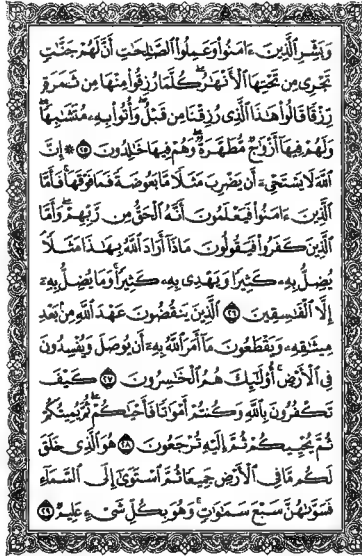 وَبَشِّرِ ٱلَّذِينَ ءَامَنُوا۟ وَعَمِلُوا۟ ٱلصَّٰلِحَٰتِ أَنَّ لَهُمْ جَنَّٰتٍ
تَجْرِى مِن تَحْتِهَا ٱلْأَنْهَٰرُ ۖ كُلَّمَا رُزِقُوا۟ مِنْهَا مِن ثَمَرَةٍ
رِّزْقًا قَالُوا۟ هَٰذَا ٱلَّذِى رُزِقْنَا مِن قَبْلُ ۖ وَأُتُوا۟ بِهِۦ مُتَشَٰبِهًا ۖ
وَلَهُمْ فِيهَآ أَزْوَٰجٌ مُّطَهَّرَةٌ ۖ وَهُمْ فِيهَا خَٰلِدُونَ ٢٥ ۞ إِنَّ
ٱللَّهَ لَا يَسْتَحْىِۦٓ أَن يَضْرِبَ مَثَلًا مَّا بَعُوضَةً فَمَا فَوْقَهَا ۚ فَأَمَّا
ٱلَّذِينَ ءَامَنُوا۟ فَيَعْلَمُونَ أَنَّهُ ٱلْحَقُّ مِن رَّبِّهِمْ ۖ وَأَمَّا
ٱلَّذِينَ كَفَرُوا۟ فَيَقُولُونَ مَاذَآ أَرَادَ ٱللَّهُ بِهَٰذَا مَثَلًا ۘ
يُضِلُّ بِهِۦ كَثِيرًا وَيَهْدِى بِهِۦ كَثِيرًا ۚ وَمَا يُضِلُّ بِهِۦٓ
إِلَّا ٱلْفَٰسِقِينَ ٢٦ ٱلَّذِينَ يَنقُضُونَ عَهْدَ ٱللَّهِ مِنۢ بَعْدِ
مِيثَٰقِهِۦ وَيَقْطَعُونَ مَآ أَمَرَ ٱللَّهُ بِهِۦٓ أَن يُوصَلَ وَيُفْسِدُونَ
فِى ٱلْأَرْضِ ۚ أُو۟لَٰٓئِكَ هُمُ ٱلْخَٰسِرُونَ ٢٧ كَيْفَ
تَكْفُرُونَ بِٱللَّهِ وَكُنتُمْ أَمْوَٰتًا فَأَحْيَٰكُمْ ۖ ثُمَّ يُمِيتُكُمْ
ثُمَّ يُحْيِيكُمْ ثُمَّ إِلَيْهِ تُرْجَعُونَ ٢٨ هُوَ ٱلَّذِى خَلَقَ
لَكُم مَّا فِى ٱلْأَرْضِ جَمِيعًا ثُمَّ ٱسْتَوَىٰٓ إِلَى ٱلسَّمَآءِ
فَسَوَّىٰهُنَّ سَبْعَ سَمَٰوَٰتٍ ۚ وَهُوَ بِكُلِّ شَىْءٍ عَلِيمٌ ٢٩